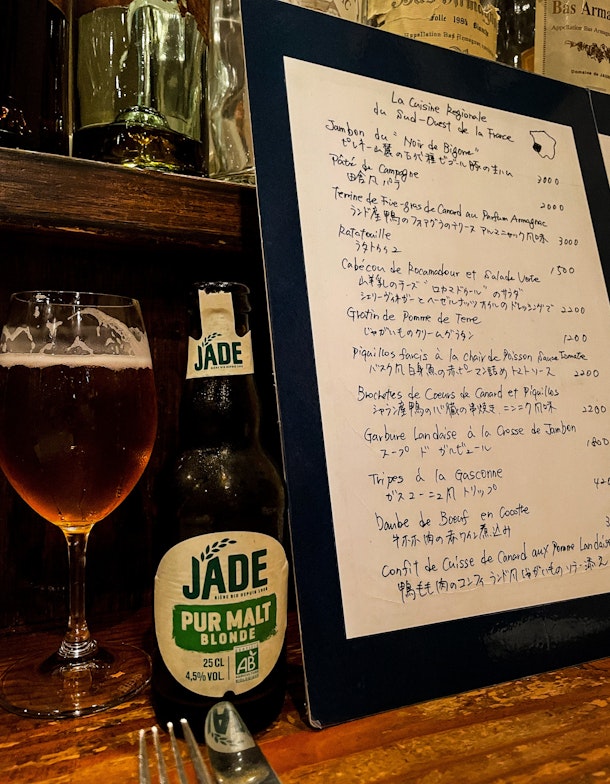 Bas Arm
Folle 1984 Blanche
Appellation Bas Armagnac
Bas Arma
Appellation Bas Armag
JADE
JADE
BIÈRE BIO DEPUIS 1986
PUR MALT
BLONDE
25 CL
4,5% VOL.
AB
La Cuisine Regionale
du Sud-Ouest de la France
Jambon du "Noir de Bigorre"
ピレネー山麓の古代種ビゴール豚の生ハム 3000
Pâté de Campagne
田舎風パテ 2000
Terrine de Foie-gras de Canard au Parfum Armagnac
ランド産鴨のフォアグラのテリーヌ アルマニャック風味 3000
Ratatouille
ラタトゥイユ 1500
Cabécou de Rocamadour et Salade Verte
山羊乳のチーズ "ロカマドゥール" のサラダ
シェリーヴィネガーとヘーゼルナッツオイルのドレッシングで 2200
Gratin de Pomme de Terre
じゃがいものクリームグラタン 1200
Piquillos farcis à la chair de Poisson Sauce Tomate
バスク風白身魚の赤ピーマン詰め トマトソース 2200
Brochetes de Coeurs de Canard et Piquillos
シャラン産鴨の心臓の串焼き ニンニク風味 2200
Garbure Landaise à la Crosse de Jambon
スープ ド ガルビュール 1800
Tripes à la Gasconne
ガスコーニュ風 トリップ 420
Daube de Boeuf en Cocotte
牛ホホ肉の赤ワイン煮込み 3
Confit de Cuisse de Canard aux Pomme Landaise
鴨もも肉のコンフィ ランド風じゃがいものソテー添え